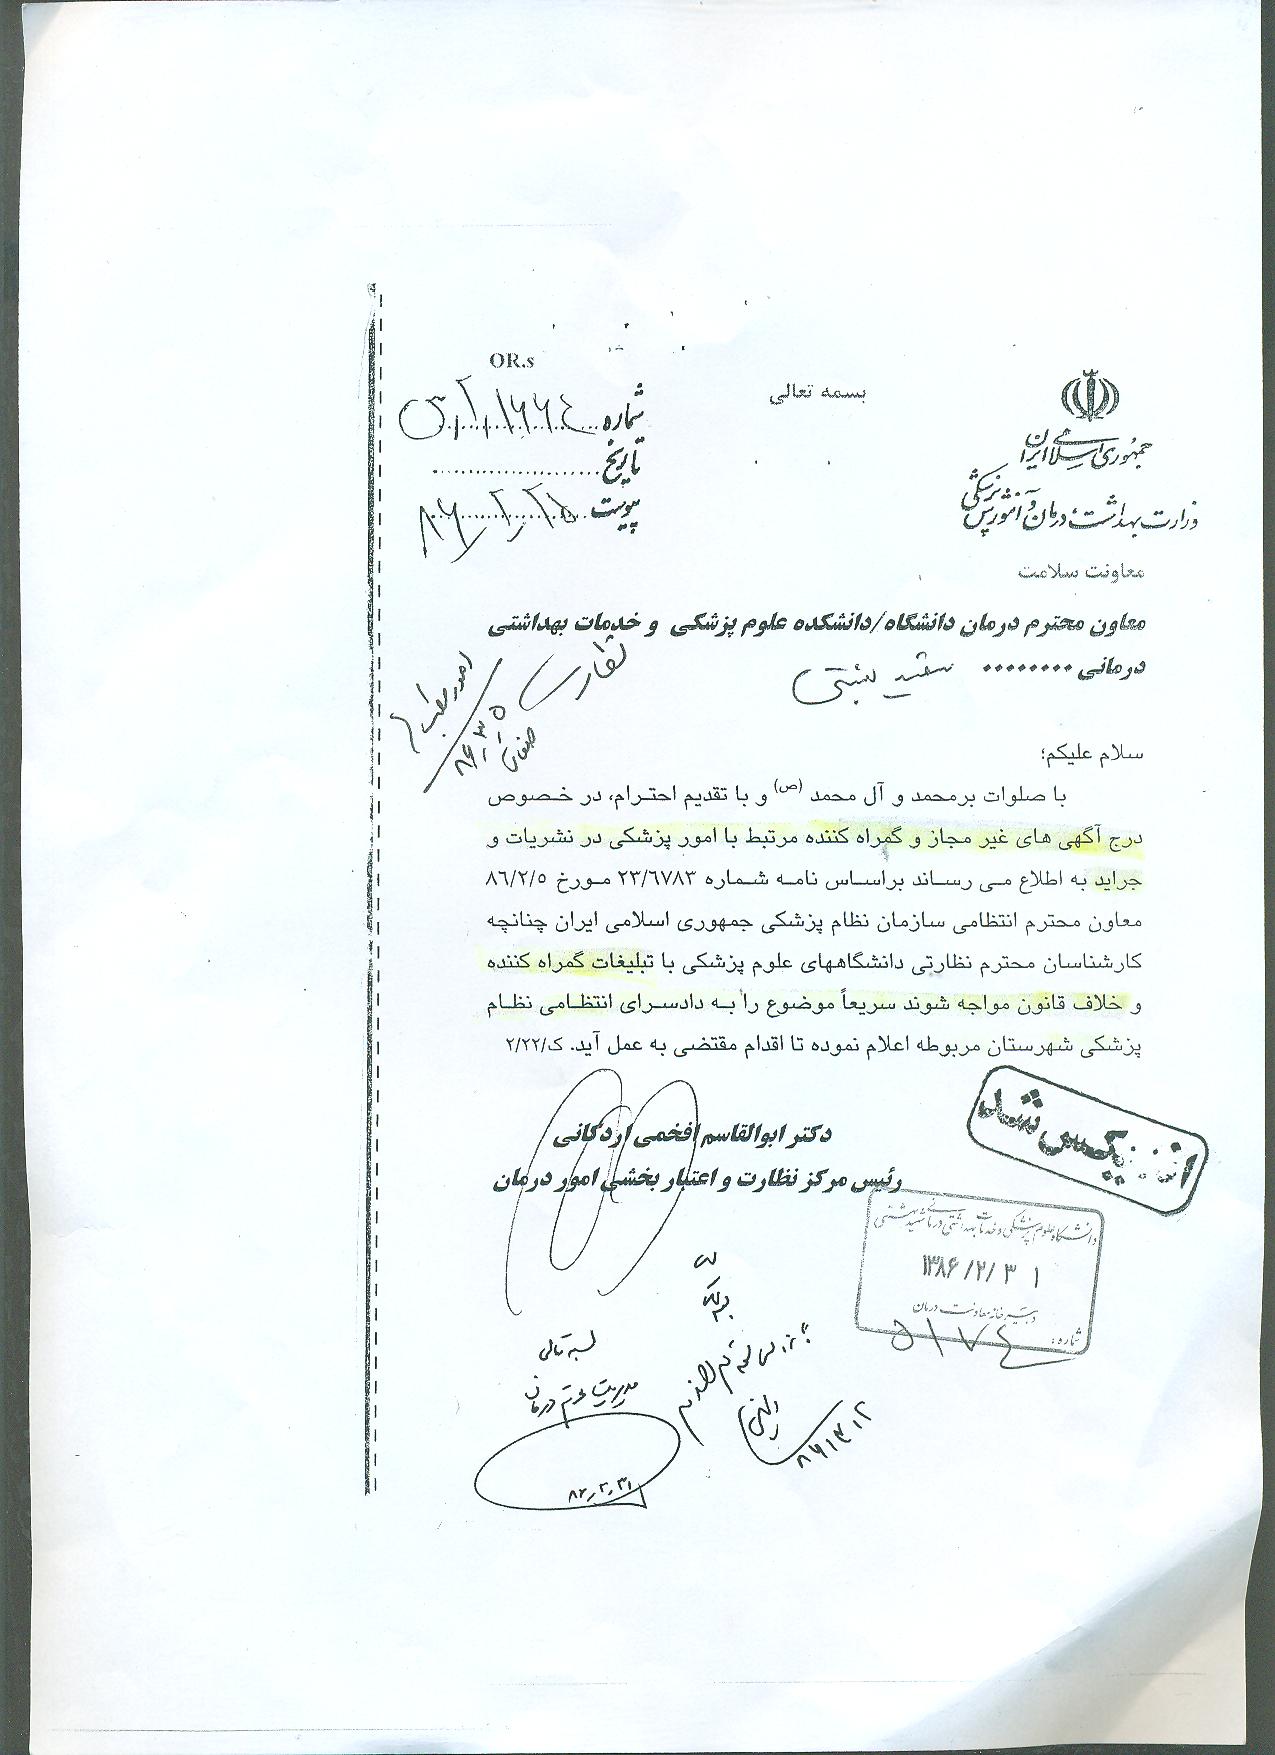 OR.s
بسمه تعالی
جمهوری اسلامی ایران
وزارت بهداشت، درمان و آموزش پزشکی
معاونت سلامت
شماره
تاریخ
پیوست
معاون محترم درمان دانشگاه/دانشکده علوم پزشکی و خدمات بهداشتی
درمانی ........ شهید بهشتی
نظارت
سلام علیکم؛
با صلوات برمحمد و آل محمد (ص) و با تقدیم احترام، در خصوص
درج آگهی های غیر مجاز و گمراه کننده مرتبط با امور پزشکی در نشریات و
جراید به اطلاع می رساند براساس نامه شماره ۲۳/۶۷۸۳ مورخ ۸۶/۲/۵
معاون محترم انتظامی سازمان نظام پزشکی جمهوری اسلامی ایران چنانچه
کارشناسان محترم نظارتی دانشگاههای علوم پزشکی با تبلیغات گمراه کننده
و خلاف قانون مواجه شوند سریعاً موضوع را به دادسرای انتظامی نظام
پزشکی شهرستان مربوطه اعلام نموده تا اقدام مقتضی به عمل آید. ک/۲/۲۲
دکتر ابوالقاسم افخمی اردکانی
رئیس مرکز نظارت و اعتبار بخشی امور درمان
اندیکس شد
دانشگاه علوم پزشکی و خدمات بهداشتی درمانی شهید بهشتی
۱۳۸۶/۲/۳۱
دبیرخانه معاونت درمان
شماره: ۵۱۷۴
بسمه تعالی
مدیریت محترم درمان